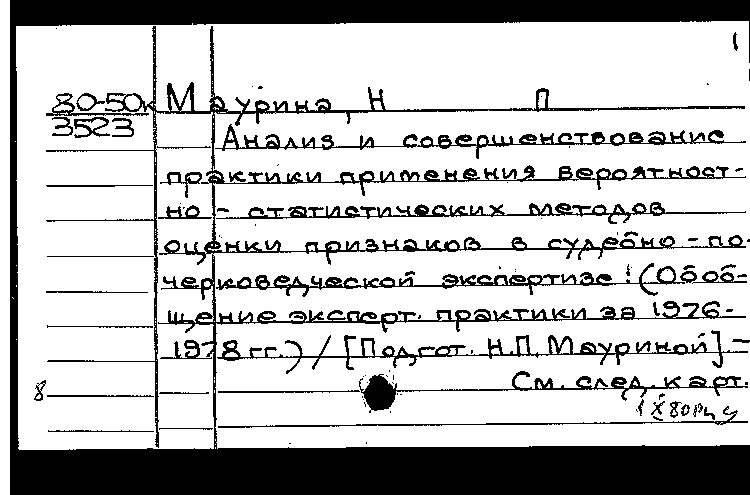 1
80-50к Маурина, Н П
3523
Анализ и совершенствование
практики применения вероятност-
но - статистических методов
оценки признаков в судебно - по-
черковедческой экспертизе: (Обоб-
щение эксперт. практики за 1976-
1978 гг.) / [Подгот. Н.П. Мауриной] -
См. след. карт.
8